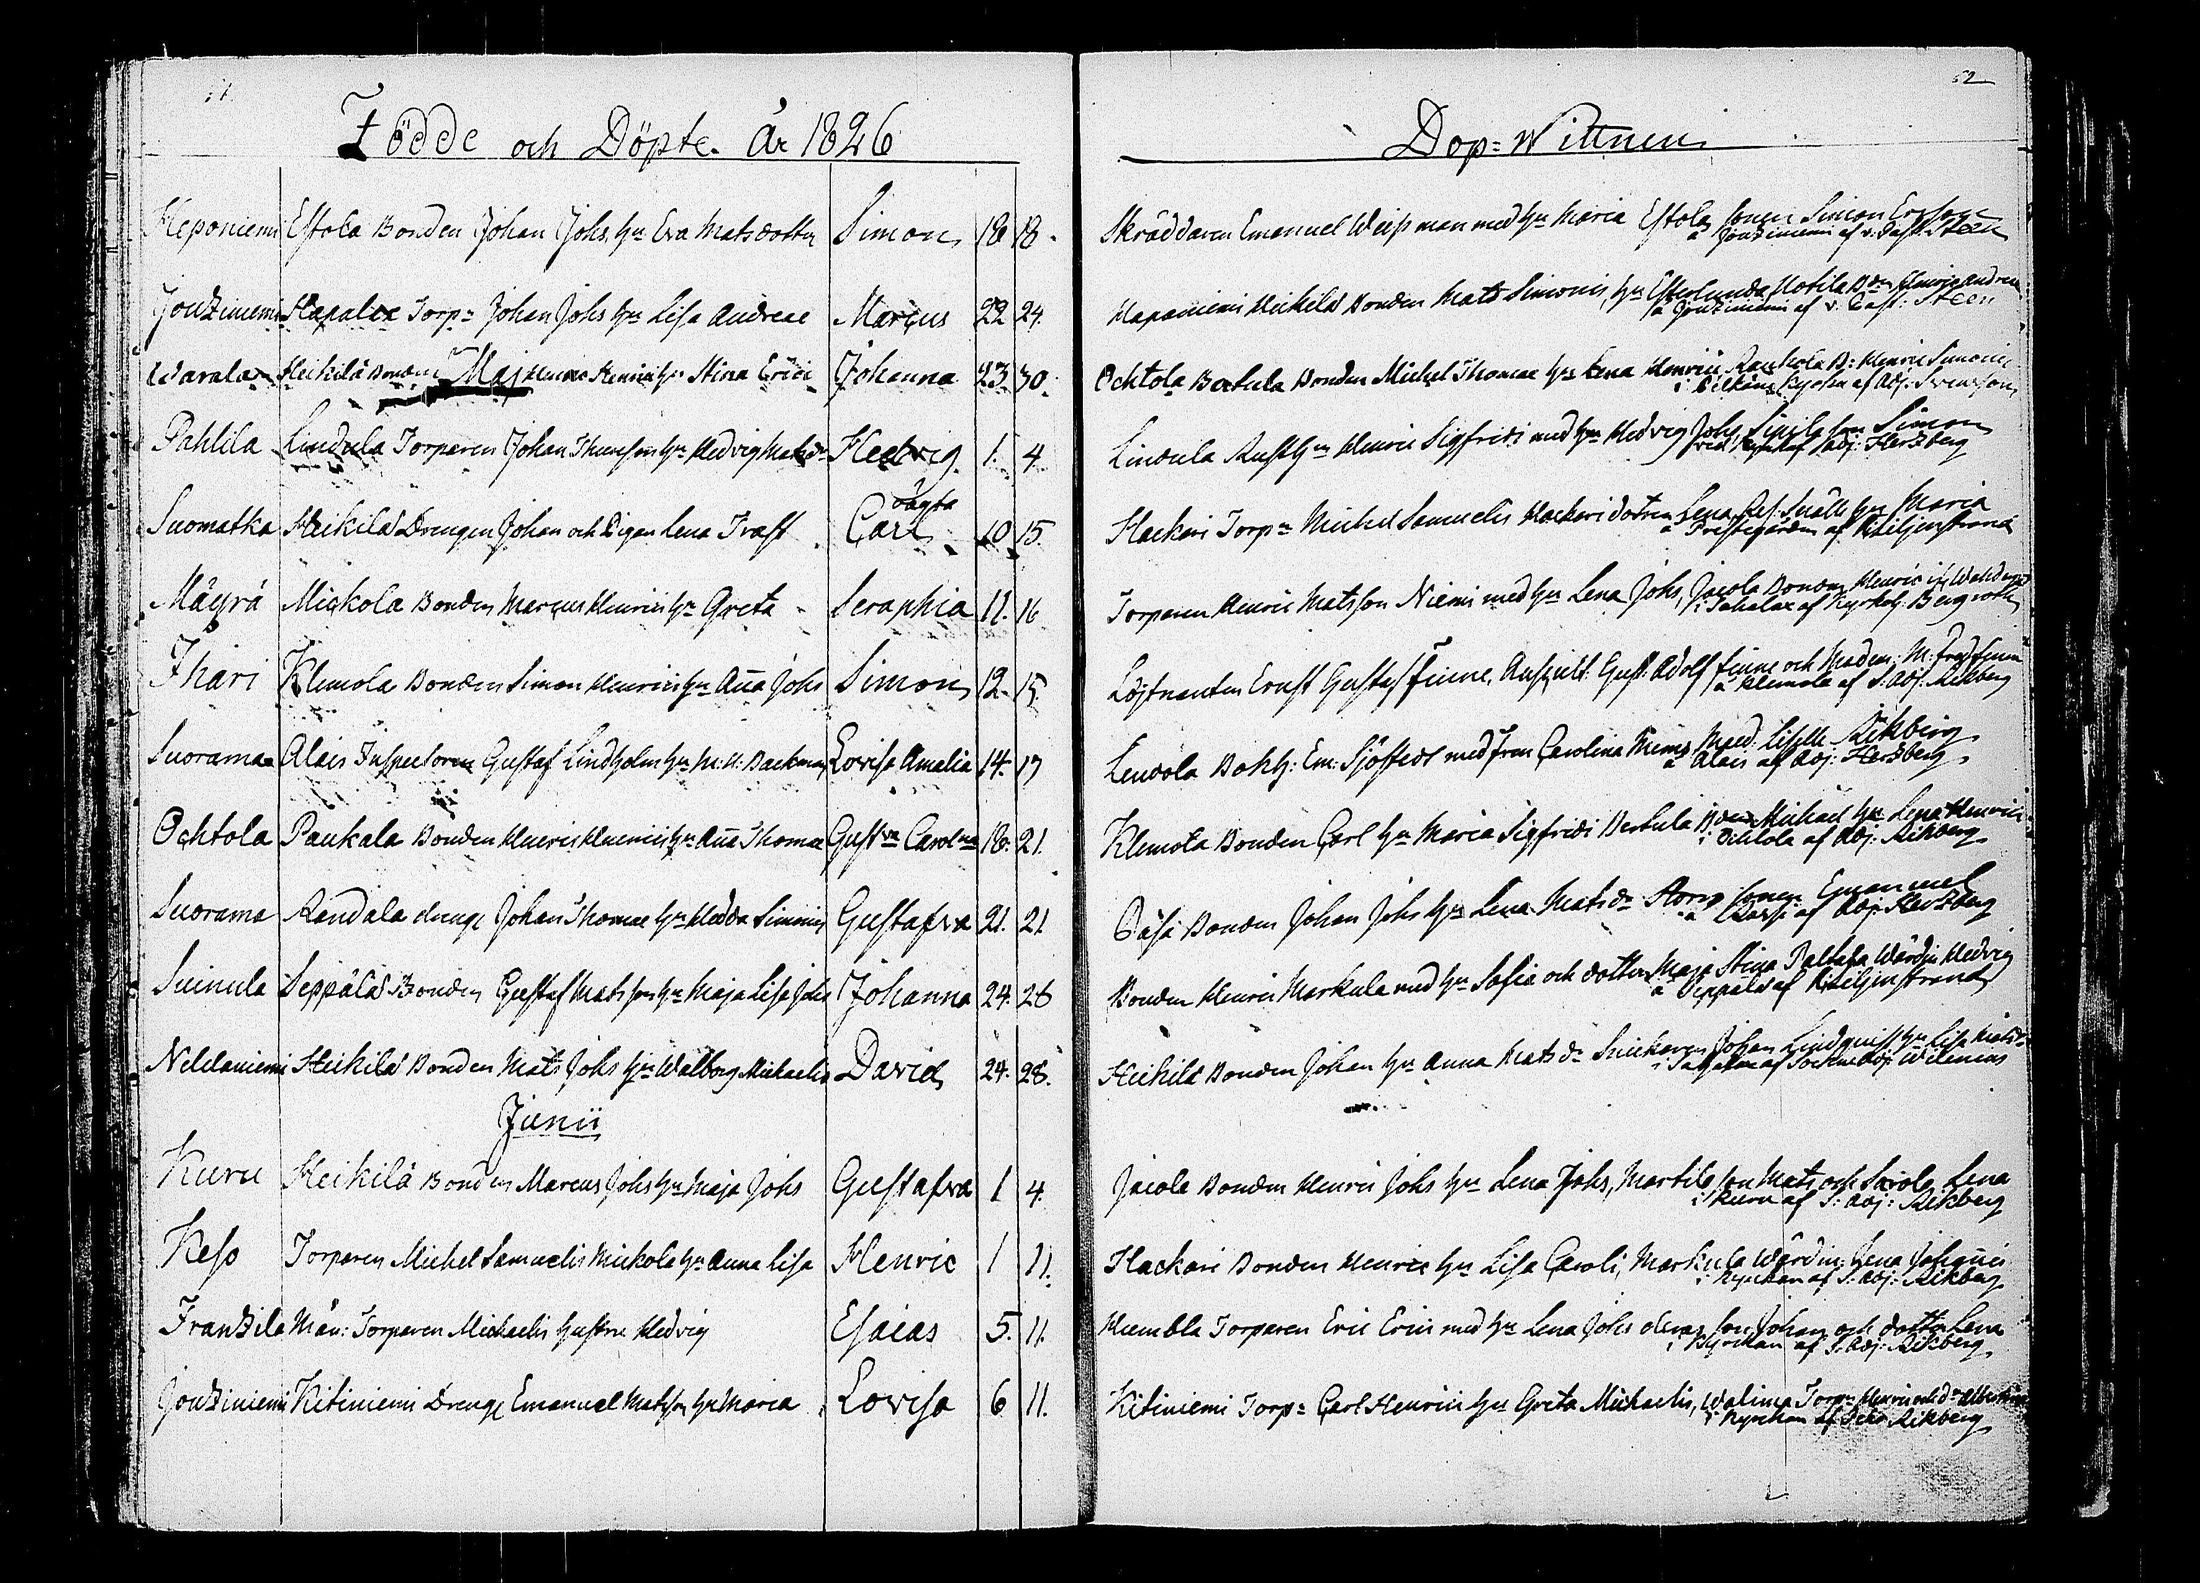 51.
Födde och Döpte År 1826
Heponiemi Estola Bonden Johan Johs hu Eva Matsdotter Simon 18 18.
Jouziniemi Hapalax Torpn Johan Johs hu Lisa Andreae Marcus 22 24.
Warala Heikilä Bonden Henric Henrici hu Stina Erici Johanna 23. 30.
Maj
Pahlila Lindula Torparen Johan Thuresson hu Hedvig Matsdr Hedvig 1. 4.
Suomatka Heikilä Drengen Johan och Pigan Lena Trast oägta Carl 10 15.
Mäyrä Mickola Bonden Marcus Henrici hu Greta Seraphia 11. 16
Ihari Klemola Bonden Simon Henrici hu Aña Johs Simon 12. 15.
Suorama Alais Inspectoren Gustaf Lindholm hu M: U: Backman Lovisa Amalia 14. 17
Ochtola Paukala Bonden Henric Henrici hu Aña Thomae Gustva Carolna 18. 21.
Suorama Randala drenge Johan Thomae hu Hedda Simonis Gustafva 21. 21
Suinula Seppälä Bonden Gustaf Matsson hu Maja Lisa Johs Johanna 24. 28
Neldaniemi Heikilä Bonden Mats Johs hu Walborg Michaelis David 24. 28.
Junii
Kuru Heikilä Bonden Marcus Johs hu Maja Johs Gustafva 1 4.
Keso Torparen Michel Samuelis Mickola hu Anna Lisa Henric 1 11.
Franzila Mån: Torparen Michaelis hustru Hedvig Esaias 5. 11.
Jouziniemi Kitiniemi Drenge Emanuel Matsson hu Maria Lovisa 6 11.
52
Dop-Wittnen
Skräddaren Emanuel Weissman med hu Maria Estola sonen Simon Ersson
å Jouziniemi af v: Past: Steen
Hapaniemi Heikilä Bonden Mats Simonis, hu Ester Uotila Bdn Henric Andreae
å Jouziniemi af v. Past: Steen
Ochtola Bertula Bonden Michel Thomae hu Lena Henrici Paukola B: Henric Simonis
i Pelkäne Kyrka af Adj: Svensson
Lindula Rusth Henric Sigfridi med hu Hedvig Johs, Sipilä son Simon
vid Kyrkan af Adj: Herzberg
Hackari Torpn Michel Samuelis Hackari dotren Lena, Ref. Snäll hu Maria
å Prestegården af Kiljenstrand
Torparen Henric Matsson Niemi med hu Lena Johs, Jacola Bonden Henric
i Sahalax af Kyrkoh: Bergroth
Löjtnanten Ernst Gustaf Finne, Auscult. Gust: Adolf Finne och Madem: M: Fred: Finne
å Klemola af S: Adj: Rekberg
Lendola Bokh: Em: Sjöstedt med Frun Carolina Maed: Liselle Rekberg
å Alais af Adj: Herzberg
Klemola Bonden Carl hu Maria Sigfridi Bertula Bonden Michael hu Lena Henrici
i Ochtola af Adj: Rekberg
Päsä Bonden Johan Johs hu Lena Matsdr Storp sonen Emanuel
af Adj: Herzberg
Bonden Henric Markula med hu Sofia och dotter Maja Stina Paltala Wärdin Hedvig
å Seppälä af Kiljenstrand
Heikilä Bonden Johan hu Anna Matsdr Snickaren Johan Lindquist hu Lisa Matsdr
i Sahalax af Sockne Adj: Wilenius
Jacola Bonden Henric Johs hu Lena Johs, Martila son Mats och Sarola Lena
i Kuru af S: Adj: Rekberg
Hackari Bonden Henric hu Lisa Caroli, Markula Wärdin: Lena Johannis
i Kyrckan af S: Adj: Rekberg
Humbla Torparen Eric Erici med hu Lena Johs deras son Johan och dotter Lena
i Kyrckan af S: Adj: Rekberg
Kitiniemi Torpn Carl Henrici hu Greta Michaelis, Walima Torpn Henric
i Kyrckan af Rekberg